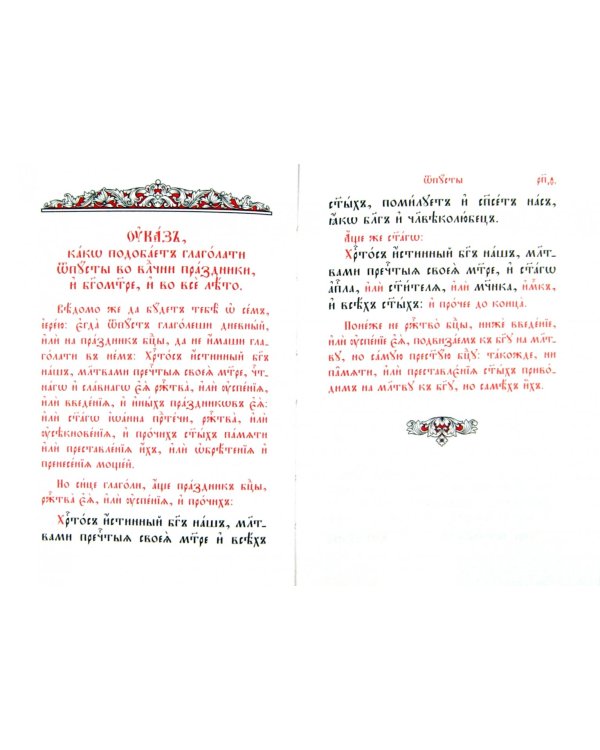 Ѹ҆ка́зъ,
ка́кѡ подоба́етъ глаго́лати
ѿпꙋ́сты во влⷣчни пра́здники,
и҆ бг҃ом҃тре, и҆ во все лѣ́то.
Вѣ́домо же да бꙋ́детъ тебѣ̀ ѡ҆ се́мъ,
і҆ере́ю: є҆гда̀ ѿпꙋ́стъ глаго́леши дне́вный,
и҆лѝ на пра́здникъ бц҃ы, да не и҆́маши гла-
го́лати въ не́мъ: Хрⷭ҇то́съ и҆́стинный бг҃ъ
на́шъ, мл҃твами пречⷭ҇тыѧ своеѧ̀ м҃тре, чⷭ҇т-
на́гѡ и҆ сла́внагѡ є҆ѧ̀ ржⷭ҇тва̀, и҆лѝ ᲂу҆спе́нїѧ,
и҆лѝ введе́нїѧ, и҆ и҆ны́хъ пра́здникѡвъ є҆ѧ̀:
и҆лѝ ст҃а́гѡ і҆ѡа́нна прⷣте́чи, ржⷭ҇тва̀, и҆лѝ
ᲂу҆сѣкнове́нїѧ, и҆ про́чихъ ст҃ы́хъ па́мѧти
и҆лѝ преставле́нїѧ и҆́хъ, и҆лѝ ѡ҆брѣ́тенїѧ и҆
пренесе́нїѧ моще́й.
Но си́це глаго́ли, а҆́ще пра́здникъ бц҃ы,
ржⷭ҇тва̀ є҆ѧ̀, и҆лѝ ᲂу҆спе́нїѧ, и҆ про́чихъ:
Хрⷭ҇то́съ и҆́стинный бг҃ъ на́шъ, мл҃т-
вами пречⷭ҇тыѧ своеѧ̀ м҃тре и҆ всѣ́хъ
ѿпꙋсты рп҃д.
ст҃ы́хъ, поми́лꙋетъ и҆ сп҃се́тъ на́съ,
ꙗ҆́кѡ бл҃гъ и҆ чл҃вѣколю́бецъ.
А҆́ще же ст҃а́гѡ:
Хрⷭ҇то́съ и҆́стинный бг҃ъ на́шъ, мл҃т-
вами пречⷭ҇тыѧ своеѧ̀ м҃тре, и҆ ст҃а́гѡ
а҆пⷭ҇ла, и҆лѝ ст҃и́телѧ, и҆лѝ мч҃нка, и҆́м҃къ,
и҆ всѣ́хъ ст҃ы́хъ: и҆ про́чее до конца̀.
Поне́же не ржⷭ҇тво̀ бц҃ы, нижѐ введе́нїе,
и҆лѝ ᲂу҆спе́нїе є҆ѧ̀, подвиза́емъ къ бг҃ꙋ на мл҃т-
вꙋ, но са́мꙋю прест҃ꙋ́ю бц҃ꙋ: та́кожде, ни
па́мѧти, и҆лѝ преставле́нїѧ ст҃ы́хъ приво́-
димъ на мл҃твꙋ къ бг҃ꙋ, но самѣ́хъ и҆́хъ.